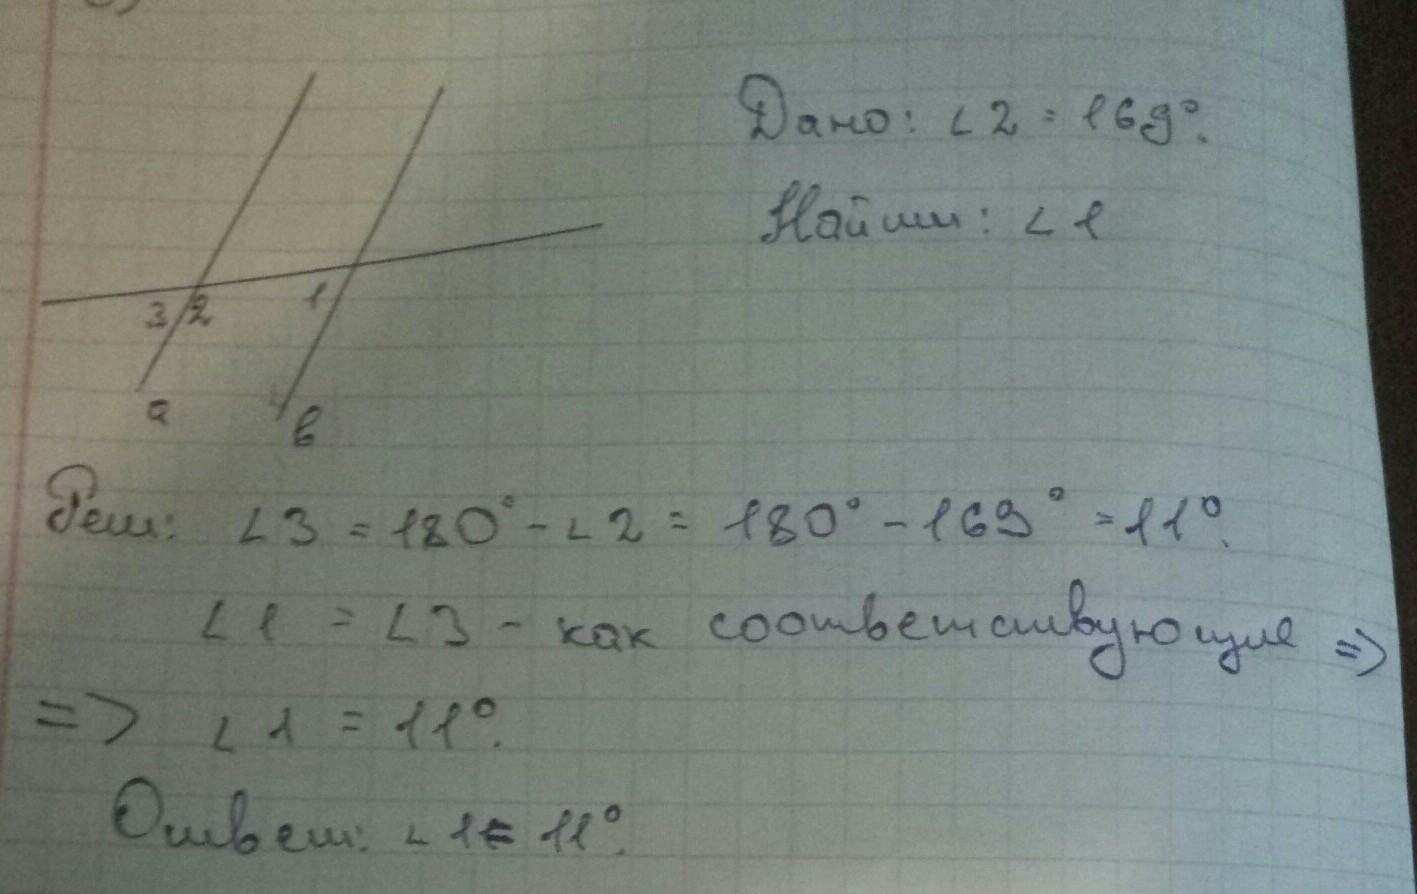 Дано: ∠2 = 169°.
Найти: ∠1
3 2 1
а
в
Реш: ∠3 = 180° - ∠2 = 180° - 169° = 11°.
∠1 = ∠3 - как соответствующие =>
=> ∠1 = 11°.
Ответ: ∠1 = 11°.